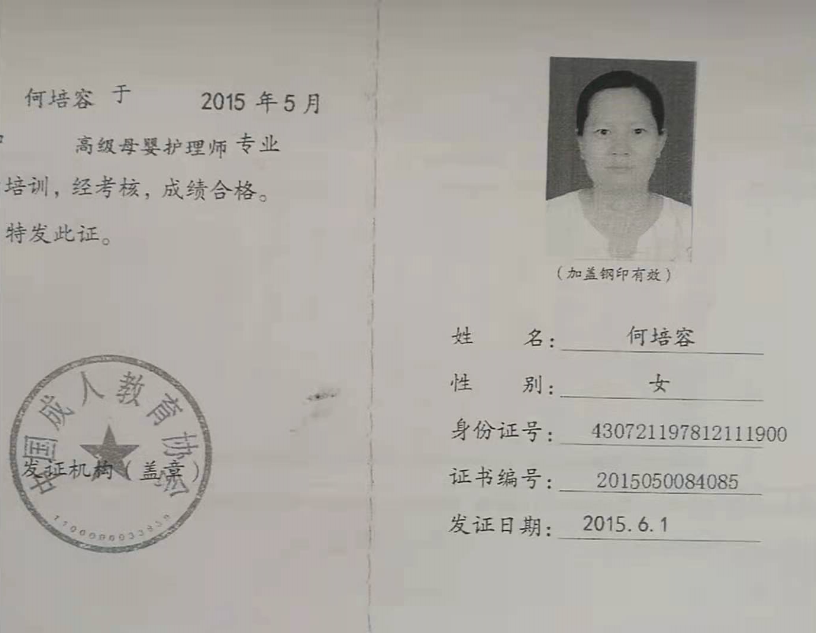 何培容于 2015年5月
高级母婴护理师专业
培训，经考核，成绩合格。
特发此证。
中国成人教育协会
发证机构（盖章）
（加盖钢印有效）
姓 名：何培容
性 别：女
身份证号：430721197812111900
证书编号：2015050084085
发证日期：2015.6.1